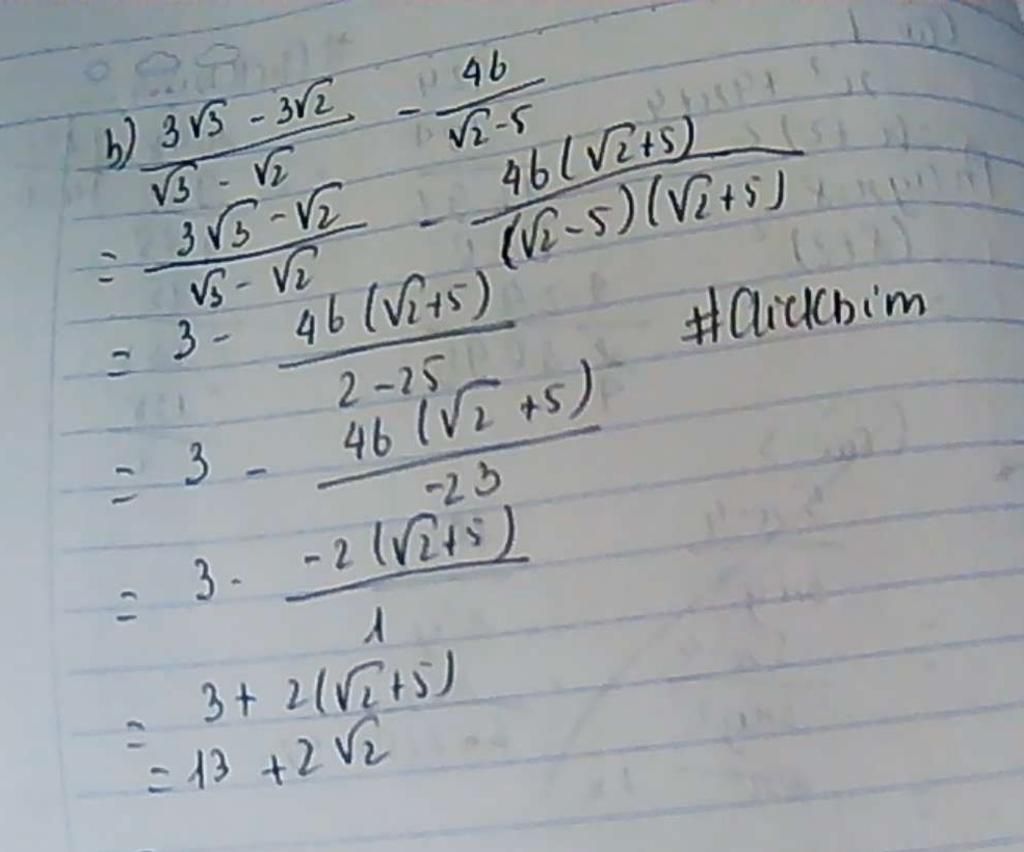 b) (3√3 - 3√2)/(√3 - √2) - 46/(√2-5)
= (3√3 - √2)/(√3 - √2) - 46(√2+5)/((√2-5)(√2+5))
= 3 - 46(√2+5)/(2-25)
= 3 - 46(√2+5)/(-23)
= 3 - (-2(√2+5))/1
= 3 + 2(√2+5)
= 13 + 2√2